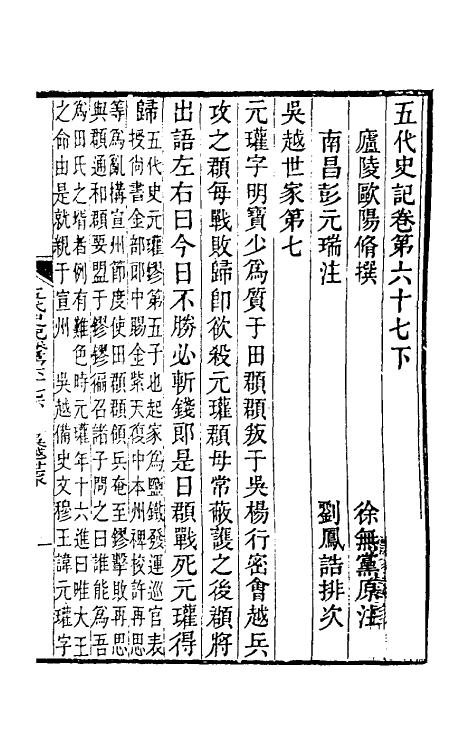 五代史記卷第六十七下
廬陵歐陽脩撰 徐無黨原注
南昌彭元瑞注 劉鳳誥排次
吳越世家第七
元瓘字明寶少爲質于田頵頵叛于吳楊行密會越兵
攻之頵每戰敗歸卽欲殺元瓘頵母常蔽護之後頵將
出語左右曰今日不勝必斬錢郎是日頵戰死元瓘得
歸
五代史元瓘鏐第五子也起家爲鹽鐵發運巡官表
授尚書金部郎中賜金紫天復中本州裨校許再思
等爲亂構宣州節度使田頵頵領兵奄至鏐擊敗再思
與頵通和頵要盟于鏐鏐徧召諸子問之曰誰能爲吾
爲田氏之壻者例有難色時元瓘年十六進曰唯大王
之命由是就親于宣州 吳越備史文穆王諱元瓘字
一